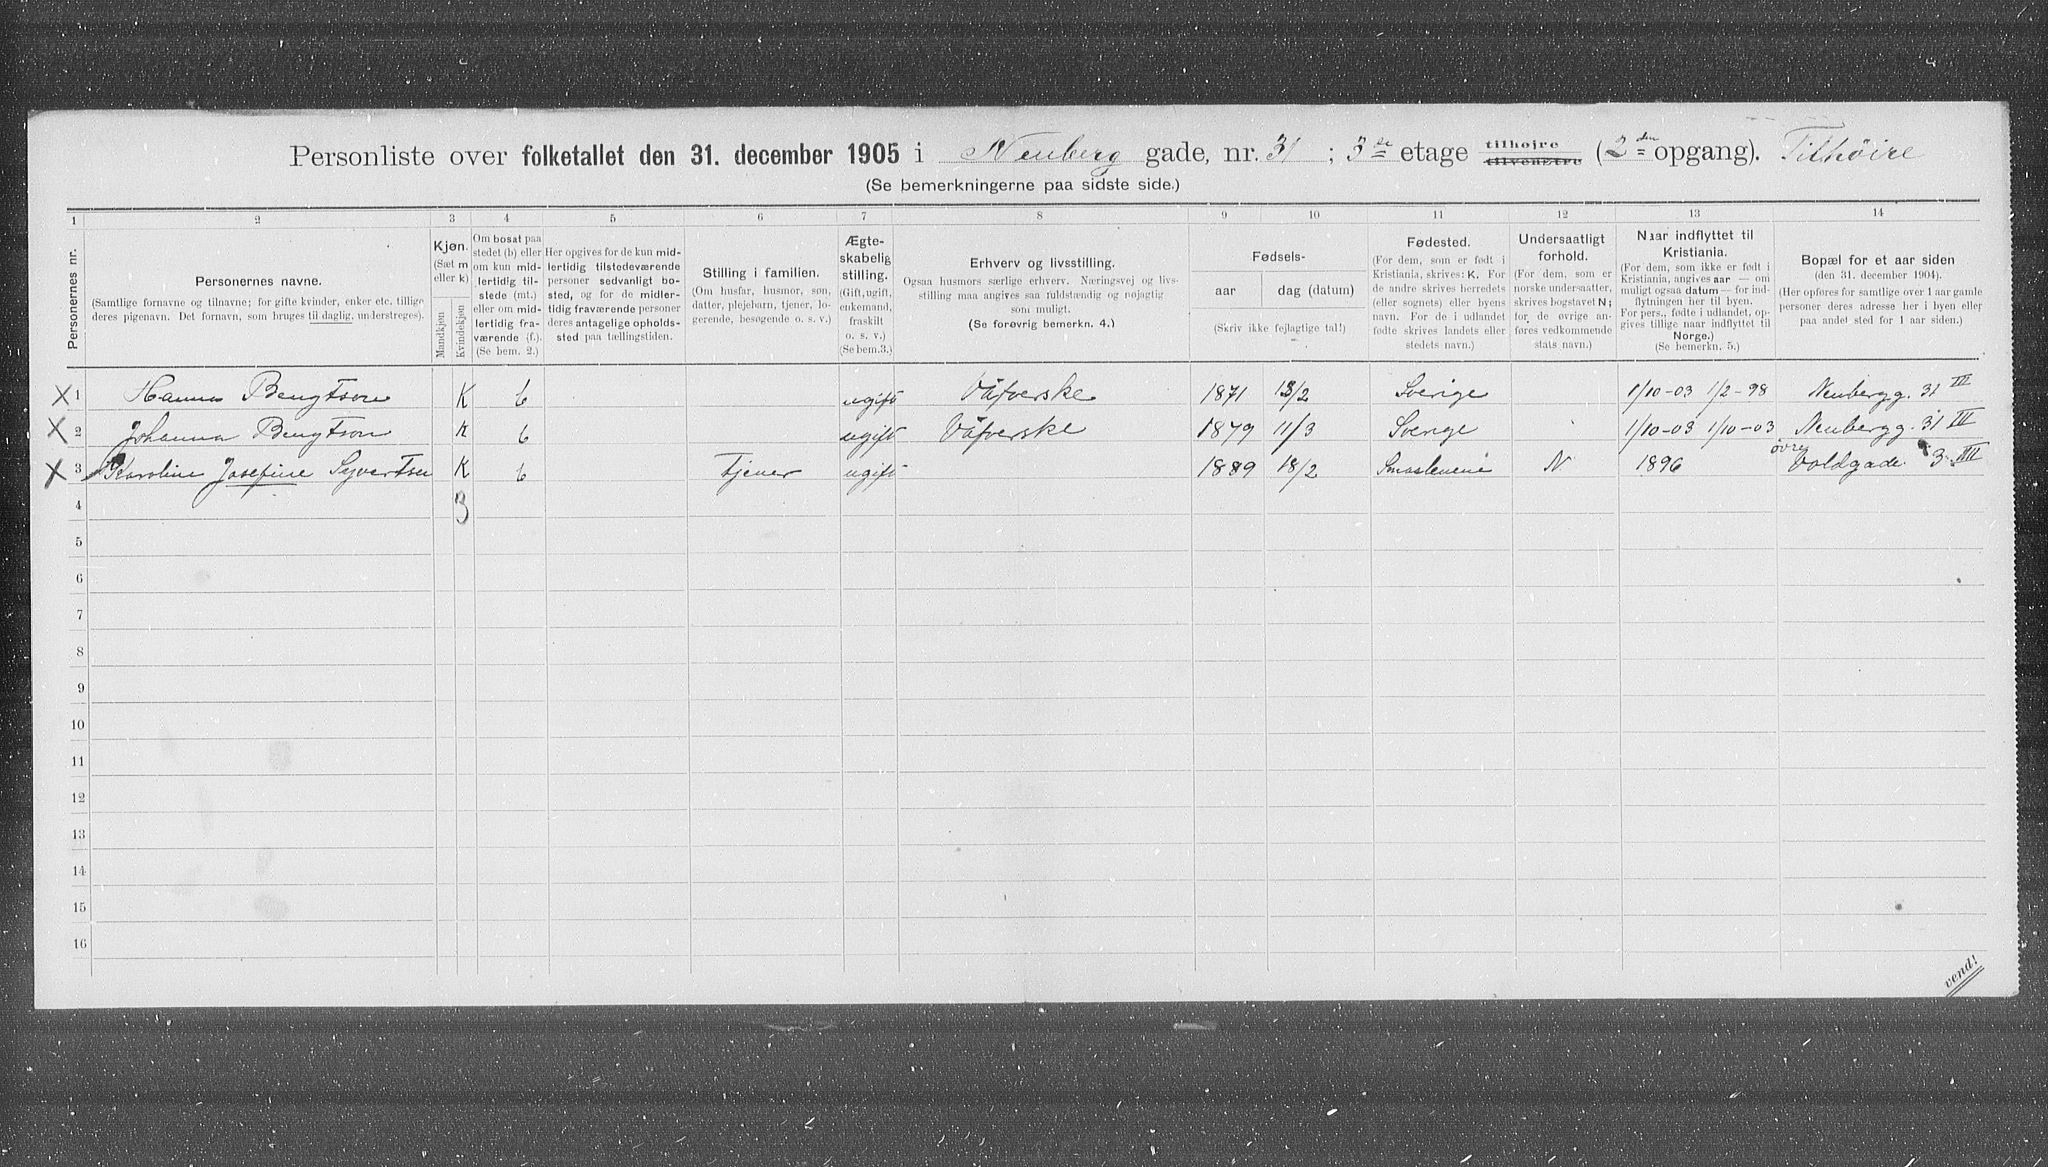 Personliste over folketallet den 31. december 1905 i Neuberg gade, nr. 31 ; 3de etage tilhøjre tilvenstre (2den opgang). Tilhøire
(Se bemerkningerne paa sidste side.)
1 2 3 4 5 6 7 8 9 10 11 12 13 14
Personernes nr.
Personernes navne.
(Samtlige fornavne og tilnavne; for gifte kvinder, enker etc. tillige
deres pigenavn. Det fornavn, som bruges til daglig, understreges).
Kjøn.
(Sæt m
eller k)
Mandkjøn
Kvindekjøn
Om bosat paa
stedet (b) eller
om kun mid-
lertidig til-
stede (mt.)
eller om mid-
lertidig fra-
værende (f.).
(Se bem. 2.)
Her opgives for de kun mid-
lertidig tilstedeværende
personer sedvanlig bo-
sted, og for de midler-
tidig fraværende personer
deres antagelige opholds-
sted paa tællingstiden.
Stilling i familien.
(Om husfar, husmor, søn,
datter, plejebarn, tjener, lo-
gerende, besøgende o. s. v.)
Ægte-
skabelig
stilling.
(Gift, ugift,
enkemand,
fraskilt
o. s. v.)
(Se bem.3.)
Erhverv og livsstilling.
Ogsaa husmors særlige erhverv. Næringsvej og livs-
stilling maa angives saa fuldstændig og nøjagtig
som muligt.
(Se forøvrig bemerkn. 4.)
Fødsels-
aar dag (datum)
(Skriv ikke fejlagtige tal!)
Fødested.
(For dem, som er født i
Kristiania, skrives: K. For
de andre skrives herredets
(eller sognets) eller byens
navn. For de i udlandet
fødte skrives landets eller
stedets navn.)
Undersaatligt
forhold.
(For dem, som er
norske undersaatter,
skrives bogstavet N;
for de øvrige an-
føres vedkommende
stats navn.)
Naar indflyttet til
Kristiania.
(For dem, som ikke er født i
Kristiania, angives aar — om
muligt ogsaa datum — for ind-
flytningen her til byen.
For pers., fødte i udlandet, op-
gives tillige naar indflyttet til
Norge.)
(Se bemerkn. 5.)
Bopæl for et aar siden
(den 31. december 1904).
(Her opføres for samtlige over 1 aar gamle
personer deres adresse her i byen eller
paa andet sted for 1 aar siden.)
X 1 Hanna Bengtson K b ugift Väfverske 1871 13/2 Sverige 1/10-03 1/2-98 Neubergg. 31 III
X 2 Johanna Bengtson K b ugift Väfverske 1879 11/3 Sverige 1/10-03 1/10-03 Neubergg. 31 III
X 3 Karoline Josefine Syvertsen K b Tjener ugift 1889 18/2 Smaalenene N 1896 øvre Voldgade 3 III
4 3
5
6
7
8
9
10
11
12
13
14
15
16
vend!